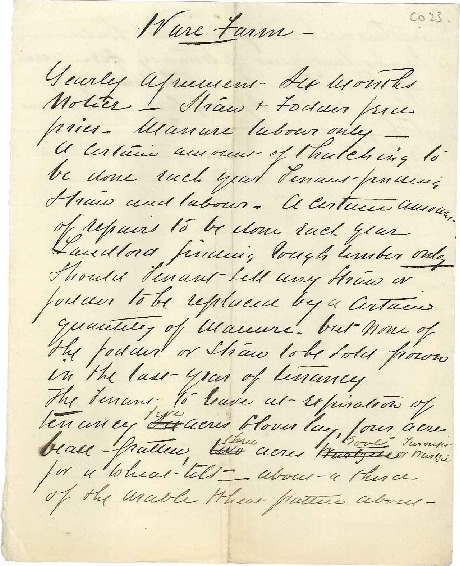 CO23.
Ware Farm –
Yearly Agreement – Six Months
Notice – Straw & Fodder free
price – Manure labour only –
A certain amount of thatching to
be done each year Tenant finding
Straw and labour – A certain amount
of repairs to be done each year
Landlord finding rough timber only
Should Tenant sell any Straw or
fodder to be replaced by a certain
quantity of Manure – but none of
the fodder or Straw to be sold grown
in the last year of tenancy
The Tenant to leave at expiration of
five
tenancy acres Clover lay, four acres
three Roots Turnips
bean gratten, two acres or
for a wheat tilt – about a third
of the arable wheat gratten about –